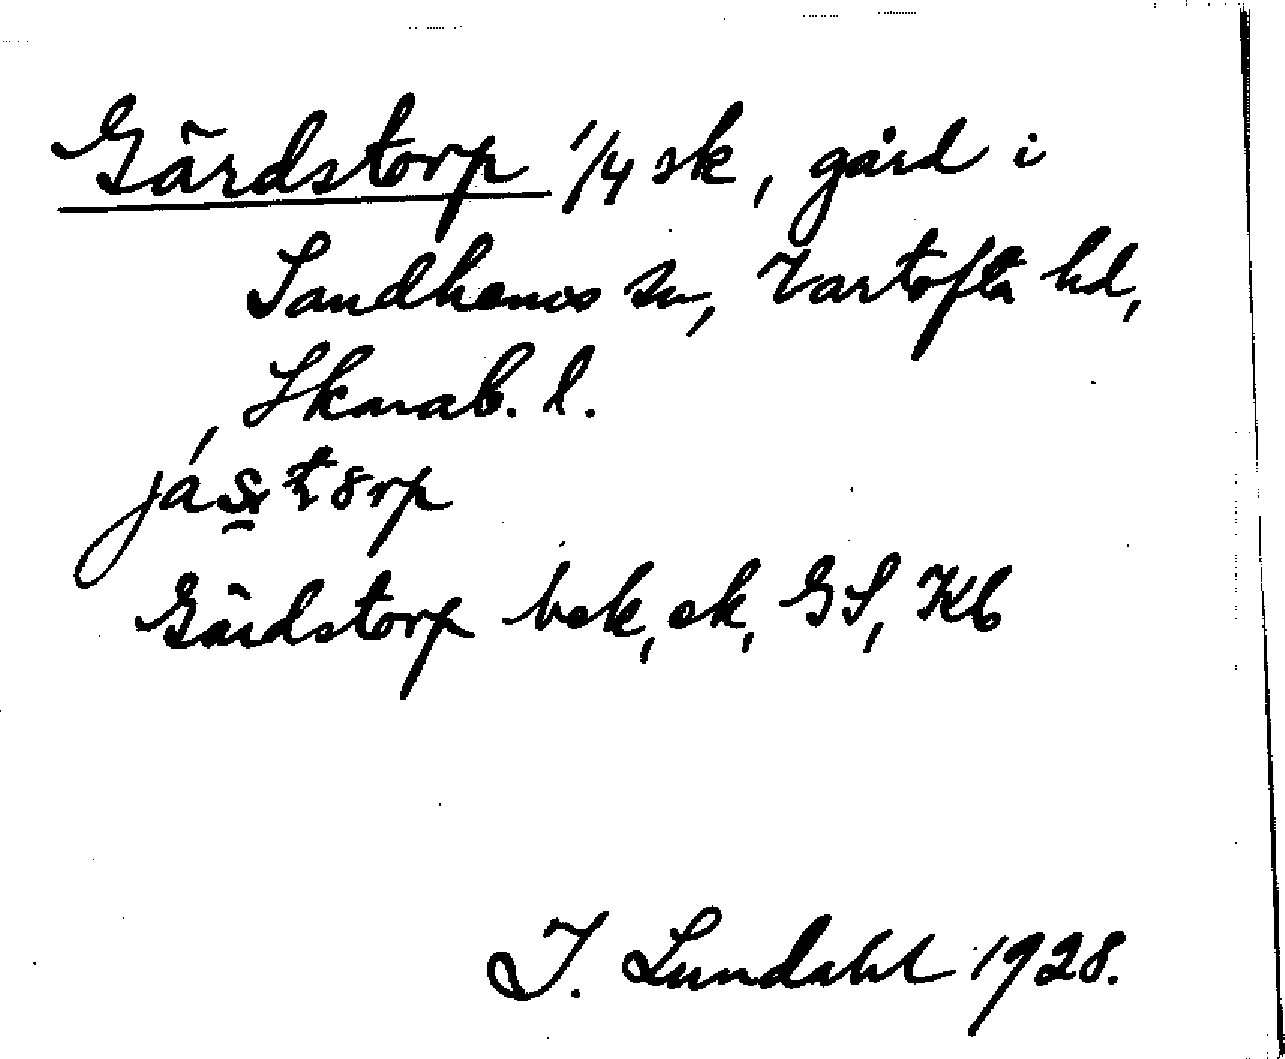 Gärdstorp 1/4 sk, gård i
Sandhems sn, Vartofta hd,
Skarab. l.
Gärdstorp bek, ek, GS, Kb
I. Lundahl 1928.